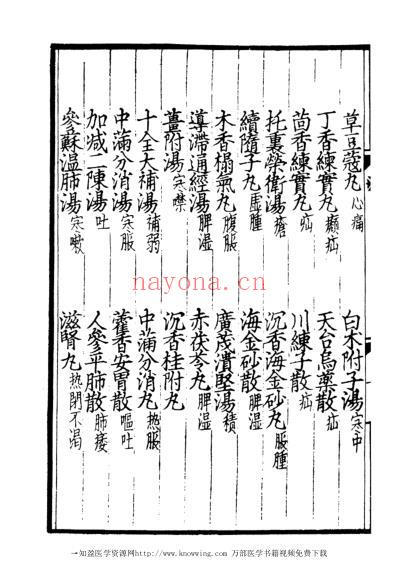 草豆蔻丸心痛
白术附子湯寒中
丁香練實丸㿗疝
天台烏藥散疝
茴香練實丸疝
川練子散疝
托裏榮衛湯瘡
沉香海金砂丸腹腫
續隨子丸虛腫
海金砂散脾湿
木香榻氣丸腹脹
廣茂潰堅湯積
導滯通經湯脾湿
赤茯苓丸脾湿
薑附湯寒㗫
沉香桂附丸
十全大補湯補弱
中滿分消丸熱脹
中滿分消湯寒脹
藿香安胃散嘔吐
加减二陳湯吐
人參平肺散肺痿
參蘇温肺湯寒嗽
滋腎丸热閉不渴
nayona.cn
一知盈医学资源网http://www.knowing.com 万部医学书籍视频免费下载